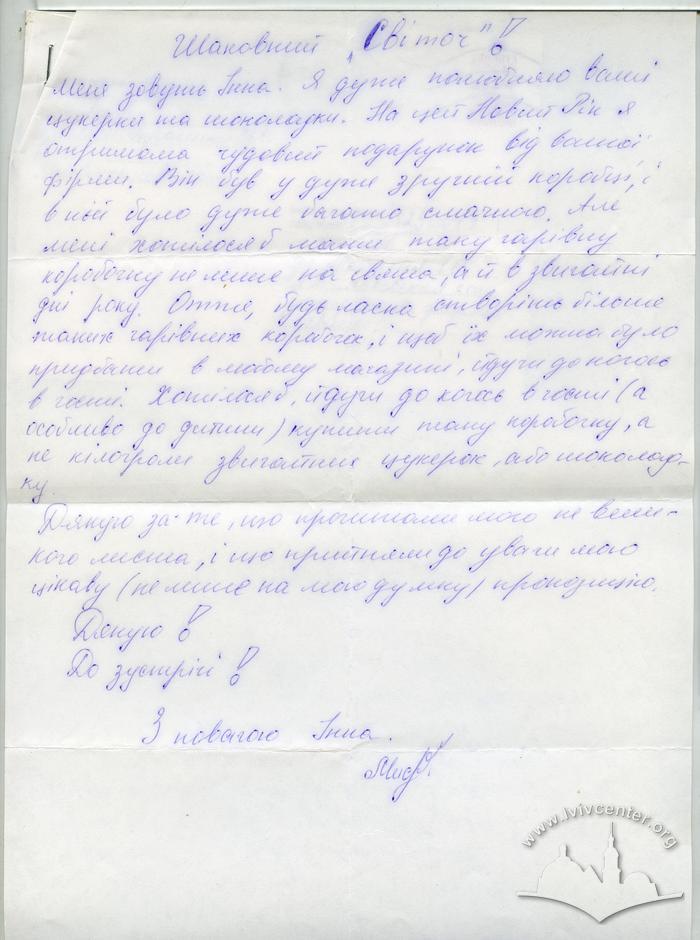 Шановний "Світоч"!
Мене зовуть Інна. Я дуже полюбляю ваші
цукерки та шоколадки. На цей Новий Рік я
отримала чудовий подарунок від вашої
фірми. Він був у дуже зручній коробці, і
в ній було дуже багато смачного. Але
мені хотілося б мати таку чарівну
коробочку не лише на свята, а й в звичайні
дні року. Отже, будь ласка створіть більше
таких чарівних коробочок, і щоб їх можна було
придбати в любому магазині, йдучи до когось
в гості. Хотілося б, йдучи до когось в гості (а
особливо до дитини) купити таку коробочку, а
не кілограми звичайних цукерок, або шоколад-
ку.
Дякую за те, що прочитали мого не вели-
кого листа, і що прийняли до уваги мою
цікаву (не лише на мою думку) пропозицію.
Дякую!
До зустрічі!
З повагою Інна.
www.lvivcenter.org